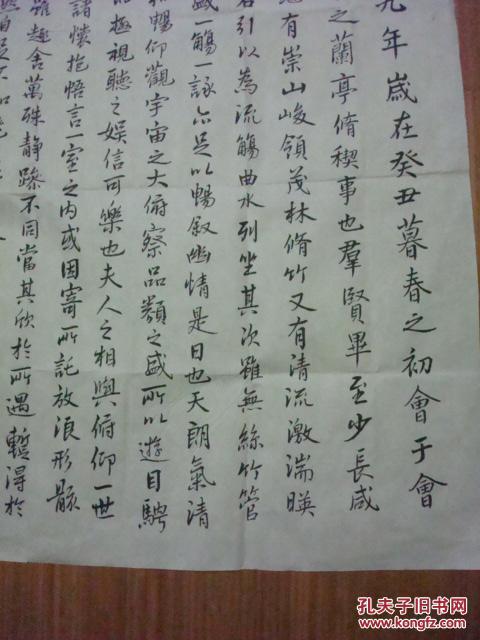 九年歲在癸丑暮春之初會于會
之蘭亭脩稧事也羣賢畢至少長咸
有崇山峻領茂林脩竹又有清流激湍暎
引以為流觴曲水列坐其次雖無絲竹管
盛一觴一詠亦足以暢叙幽情是日也天朗氣清
暢仰觀宇宙之大俯察品類之盛所以遊目騁
極視聽之娛信可樂也夫人之相與俯仰一世
諸懷抱悟言一室之內或因寄所託放浪形骸
趣舍萬殊静躁不同當其欣於所遇暫得於
孔夫子旧书网
www.kongfz.com